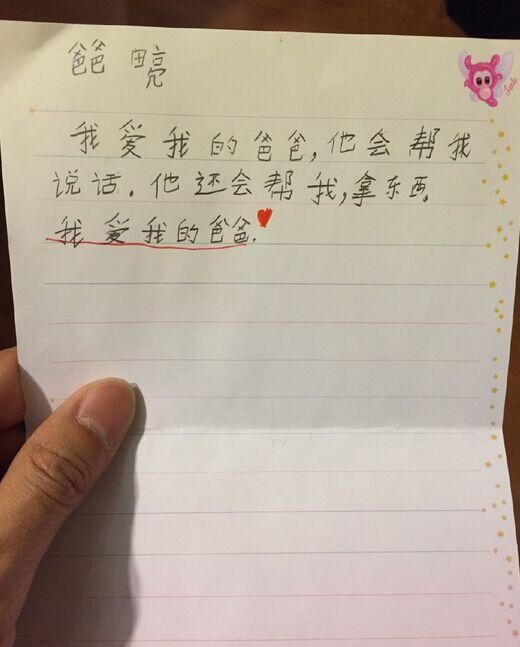 爸爸 田亮
我爱我的爸爸,他会帮我
说话.他还会帮我,拿东西.
我爱我的爸爸.